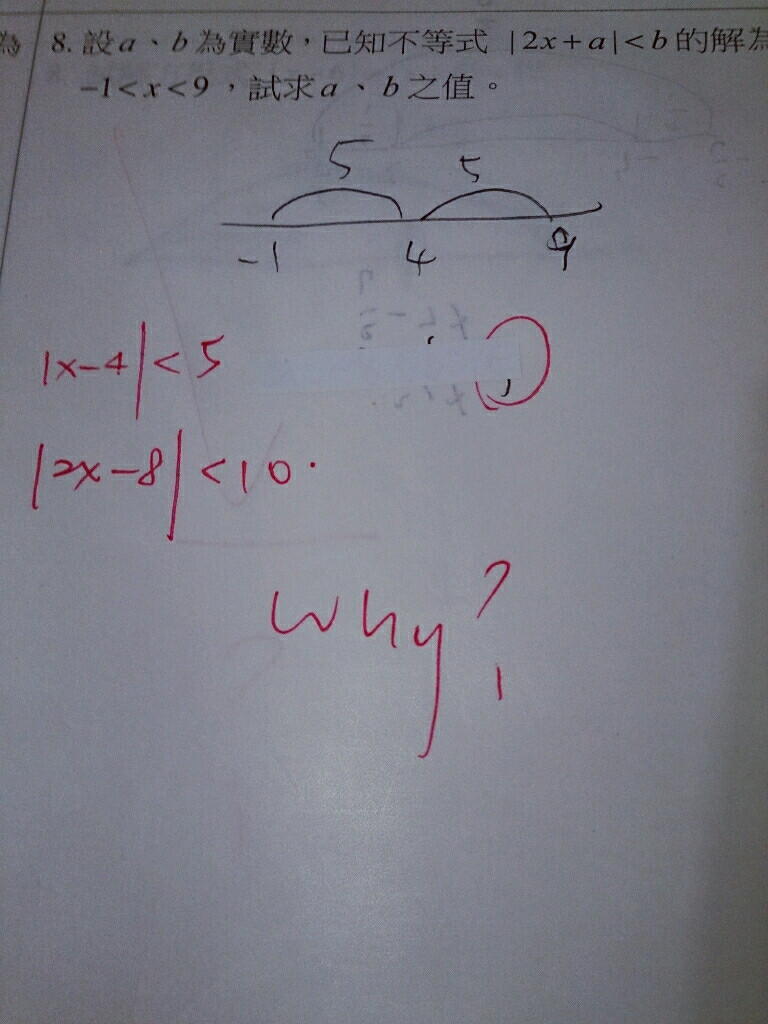 為
8. 設a、b為實數，已知不等式 |2x+a|<b的解為
-1<x<9，試求a、b之值。
5 5
-1 4 9
|x-4|<5
|2x-8|<10.
Why?